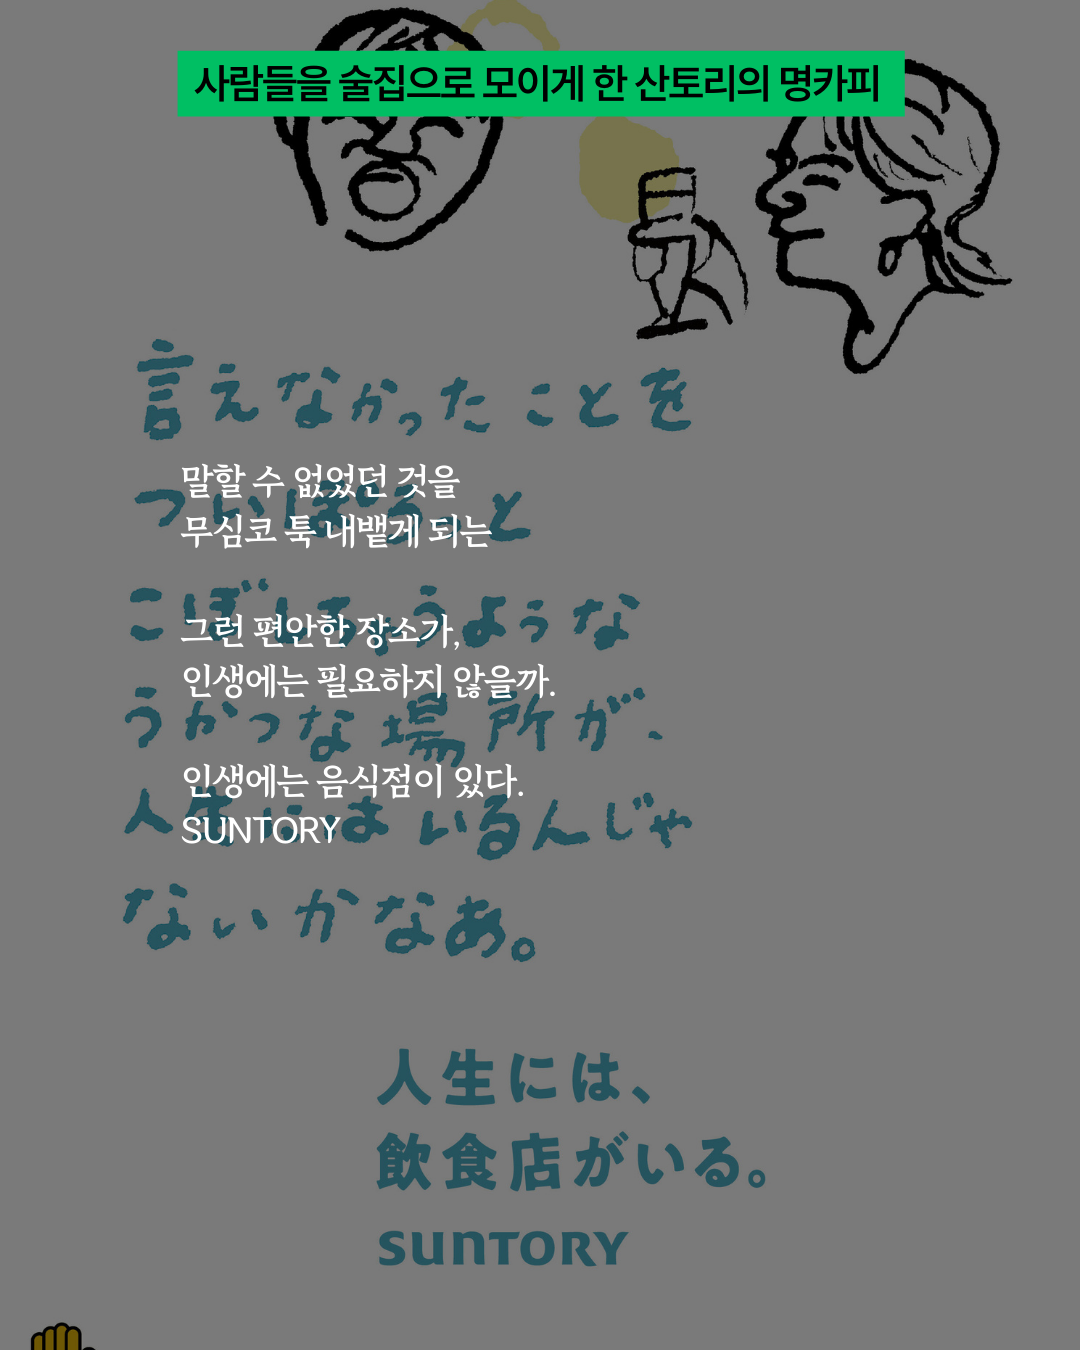 사람들을 술집으로 모이게 한 산토리의 명카피
言えなかったことを
말할 수 없었던 것을
ついぽろっと
무심코 툭 내뱉게 되는
こぼしちゃうような
그런 편안한 장소가,
인생에는 필요하지 않을까.
うかつな場所が、
인생에는 음식점이 있다.
人生にはいるんじゃ
SUNTORY
ないかなあ。
人生には、
飲食店がいる。
SUNTORY